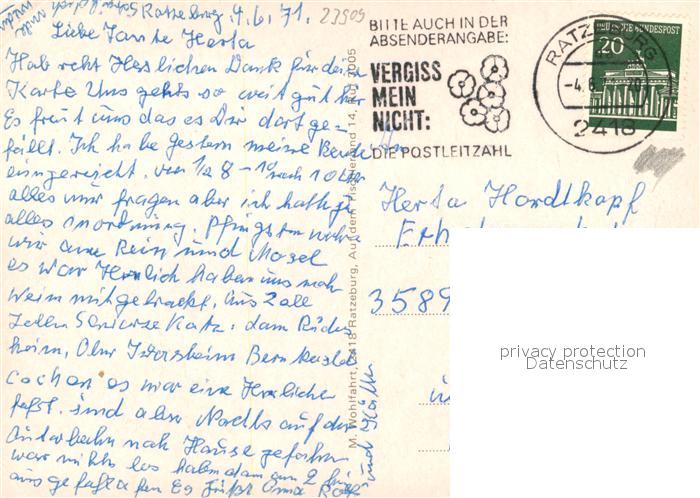 Ratzeburg, 4.6.71.
23909
Liebe Tante Herta
Hab recht Herzlichen Dank für deine
Karte Uns gehts so weit gut hier
Es freut uns das es Dir dort ge-
fällt. Ich habe Gestern meine
eingereicht. von 1/2 8 - nach 10 Uhr
alles mir fragen aber ich hatte ja
alles in Ordnung. Pfingsten
wir am Rein und Mosel
es war Herrlich haben uns noch
Wein mitgebracht. Aus Zell
Zeller Schwarze Katz. dann Rüdes
heim, Bernkastel
Cochen es war eine Herrliche
sind aber Nachts auf der
Autobahn nach Hause gefahren
war nichts los haben dann um 2
Es Grüßt Oma Rolf
und Käthe
BITTE AUCH IN DER
ABSENDERANGABE:
VERGISS
MEIN
NICHT:
DIE POSTLEITZAHL
RATZEBURG
-4.6.
2418
20
DEUTSCHE BUNDESPOST
M. Wohlfahrt, 2418 Ratzeburg, Auf dem Fischerland 14, Ruf 7005
Herta Hordtkopf
3589
privacy protection
Datenschutz